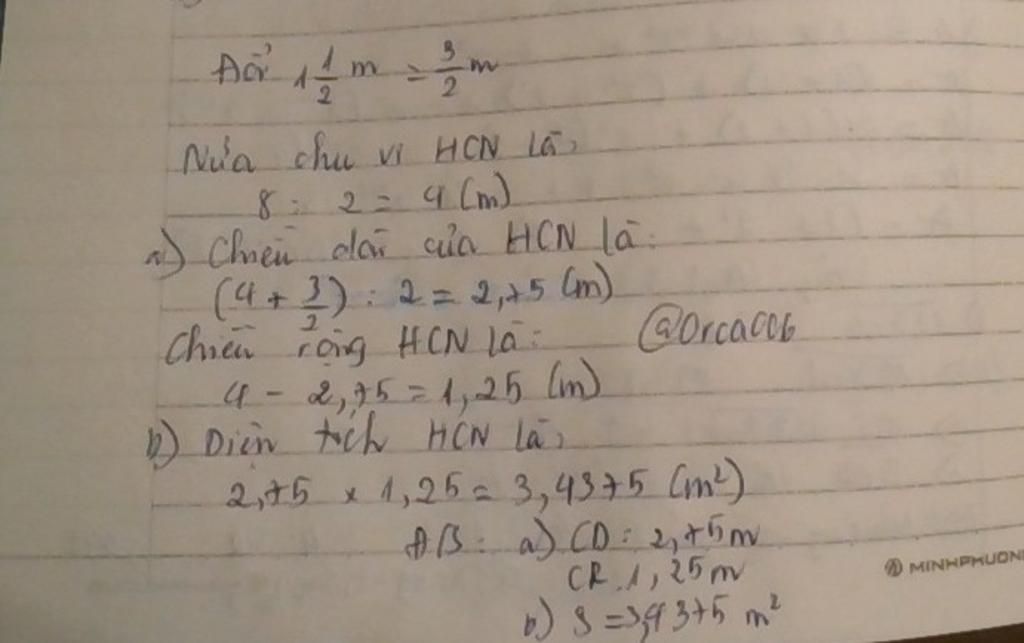 Đổi 1 1/2 m = 3/2 m
Nửa chu vi HCN là:
8 : 2 = 4 (m)
a) Chiều dài của HCN là:
(4 + 3/2) : 2 = 2,75 (m)
Chiều rộng HCN là: @Orca006
4 - 2,75 = 1,25 (m)
b) Diện tích HCN là:
2,75 x 1,25 = 3,4375 (m²)
ĐS: a) CD: 2,75m
CR: 1,25m
MINHPHUON
b) S = 3,4375 m²